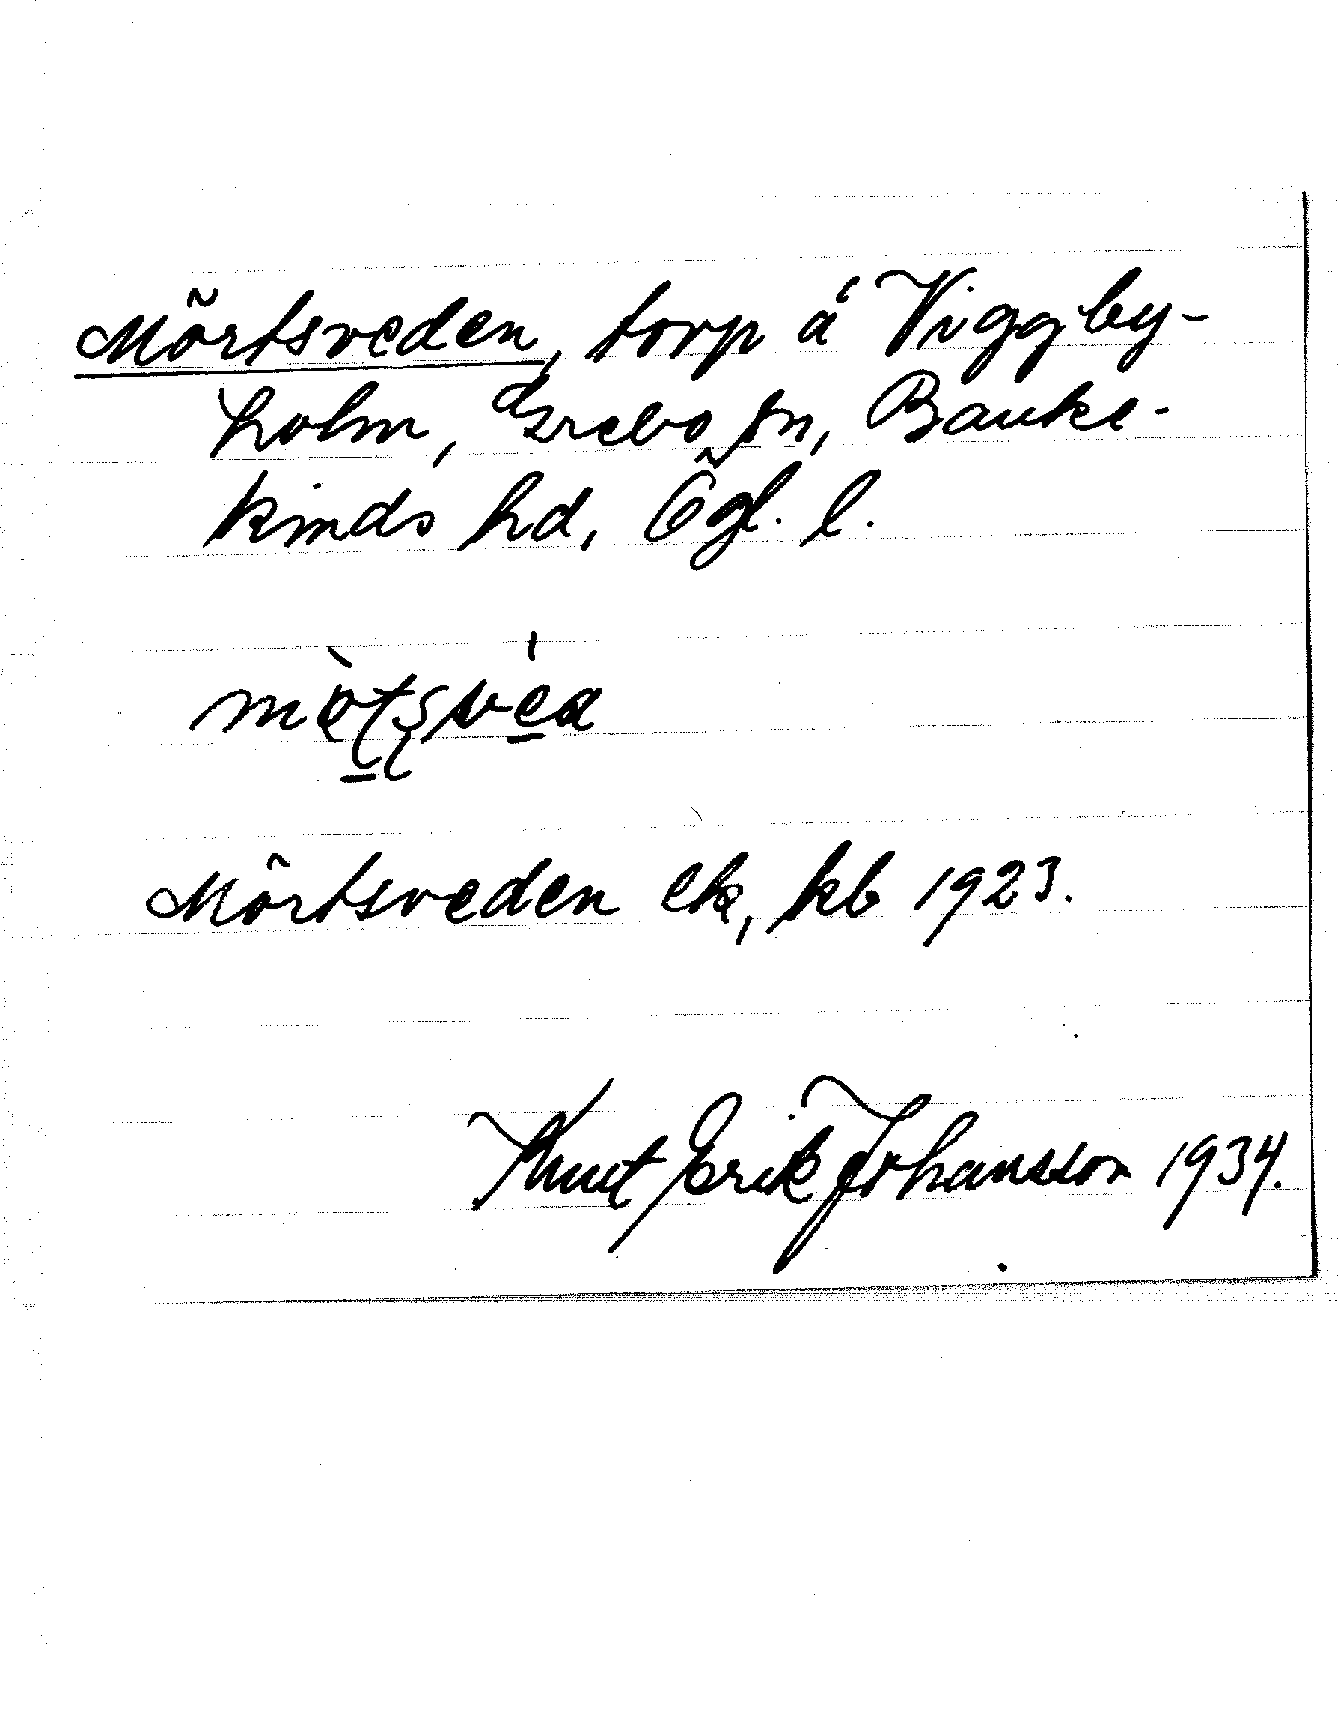 Mörtsveden, torp å Viggby-
holm, Grebo sn, Banke-
kinds hd, Ögl. l.
Mörtsveden ek, kb 1923.
Knut Erik Johansson 1934.